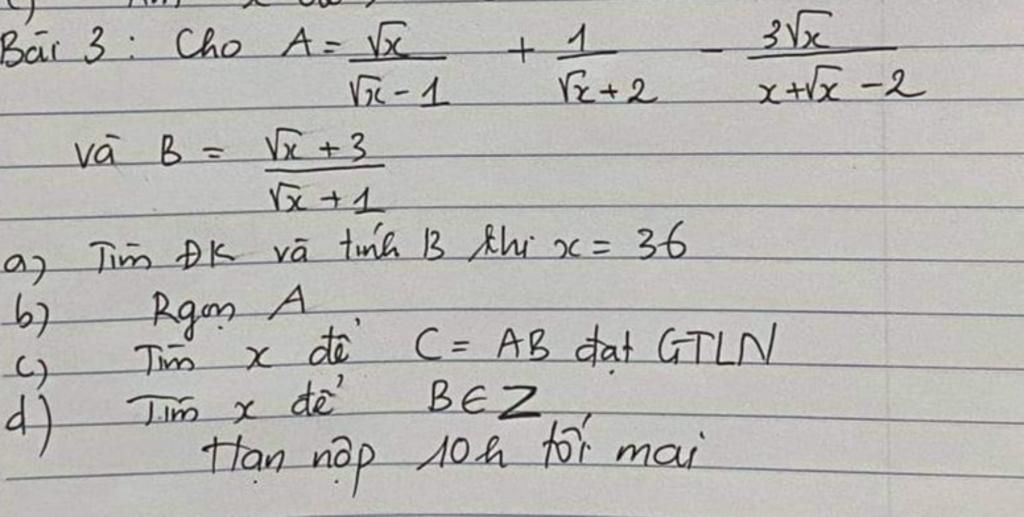 Bài 3 : Cho A = √x/(√x - 1) + 1/(√x + 2) - 3√x/(x + √x - 2)
và B = (√x + 3)/(√x + 1)
a) Tìm ĐK và tính B khi x = 36
b) Rgọn A
c) Tìm x để C = AB đạt GTLN
d) Tìm x để B ∈ Z
Hạn nộp 10h tối mai